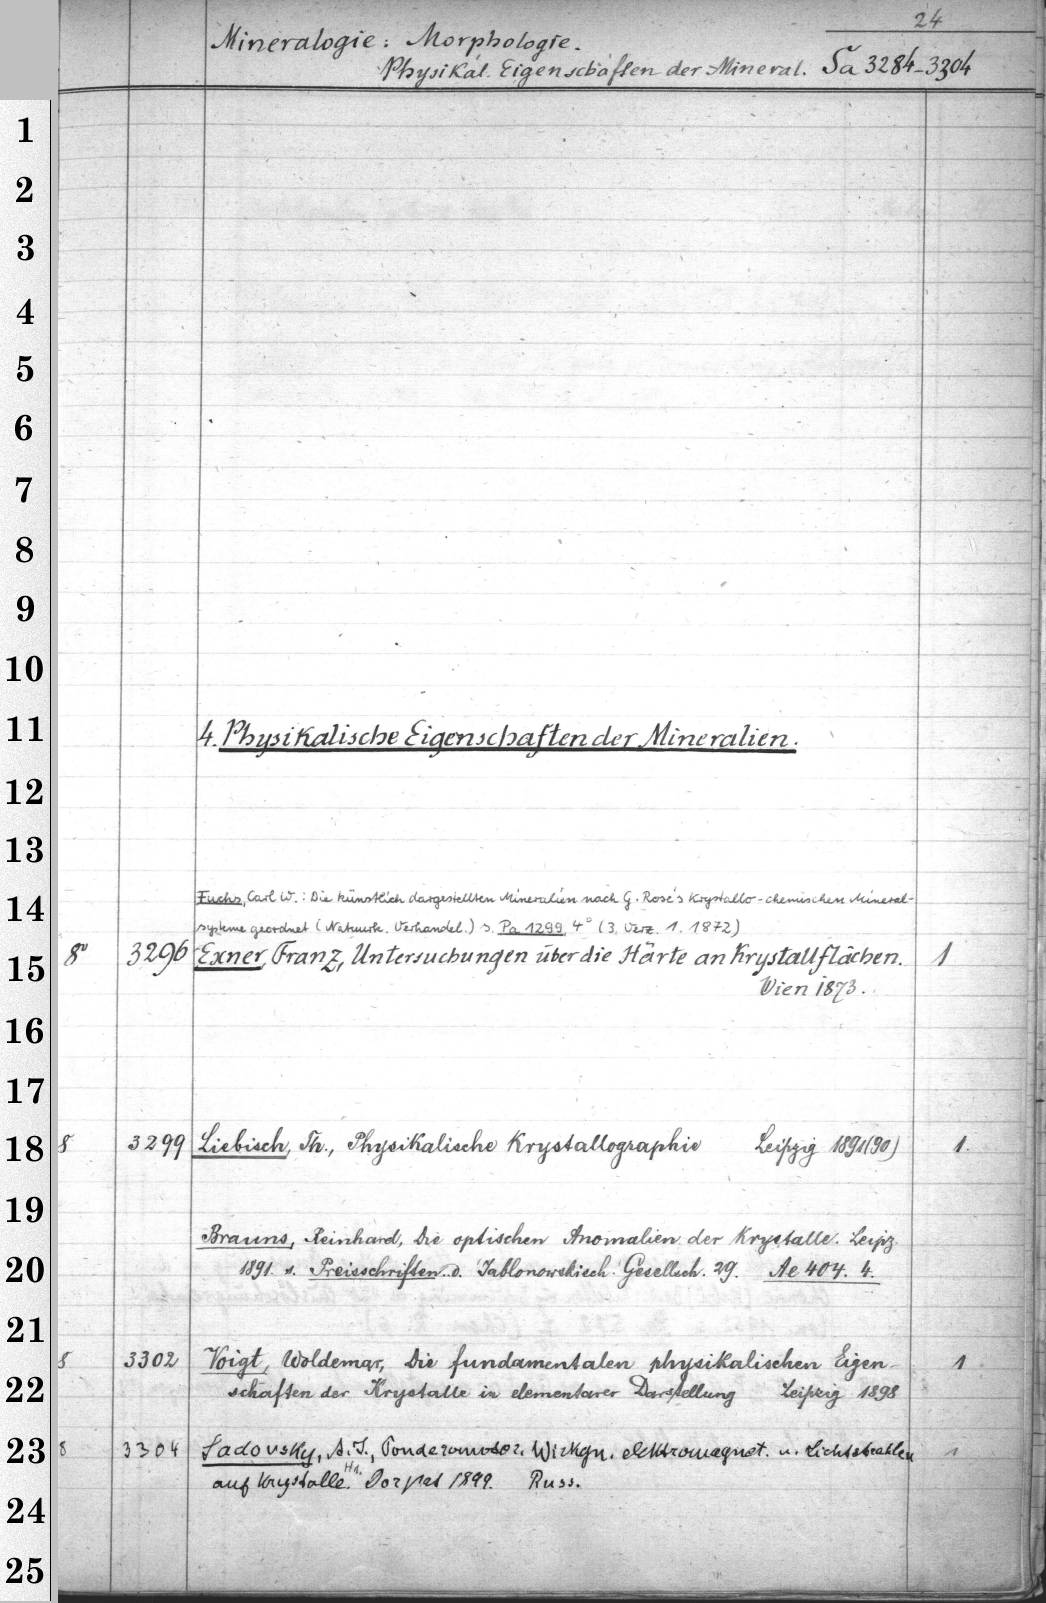 24
Mineralogie: Morphologie.
Physikal. Eigenschaften der Mineral. Sa 3284-3304
1
2
3
4
5
6
7
8
9
10
11 4. Physikalische Eigenschaften der Mineralien.
12
13
14 Fuchs, Carl W.: Die künstlich dargestellten Mineralien nach G. Rose's Krystallo-chemischen Mineral-
systeme geordnet (Natuurk. Verhandel.) s. Pa 1299 4° (3. Verz. 1. 1872)
15 8° 3296 Exner, Franz, Untersuchungen über die Härte an Krystallflächen. 1
Wien 1873.
16
17
18 8 3299 Liebisch, Th., Physikalische Krystallographie Leipzig 1891(90) 1.
19
Brauns, Reinhard, Die optischen Anomalien der Krystalle. Leipz.
20 1891. s. Preisschriften d. Jablonowskisch. Gesellsch. 29. Ae 404. 4.
21
8 3302 Voigt, Woldemar, Die fundamentalen physikalischen Eigen- 1
22 schaften der Krystalle in elementarer Darstellung Leipzig 1898
23 8 3304 Sadovsky, A. I., Ponderomotor. Wirkgn. elektromagnet. u. Lichtstrahlen 1
auf Krystalle. Dorpat 1899. Russ.
24
25